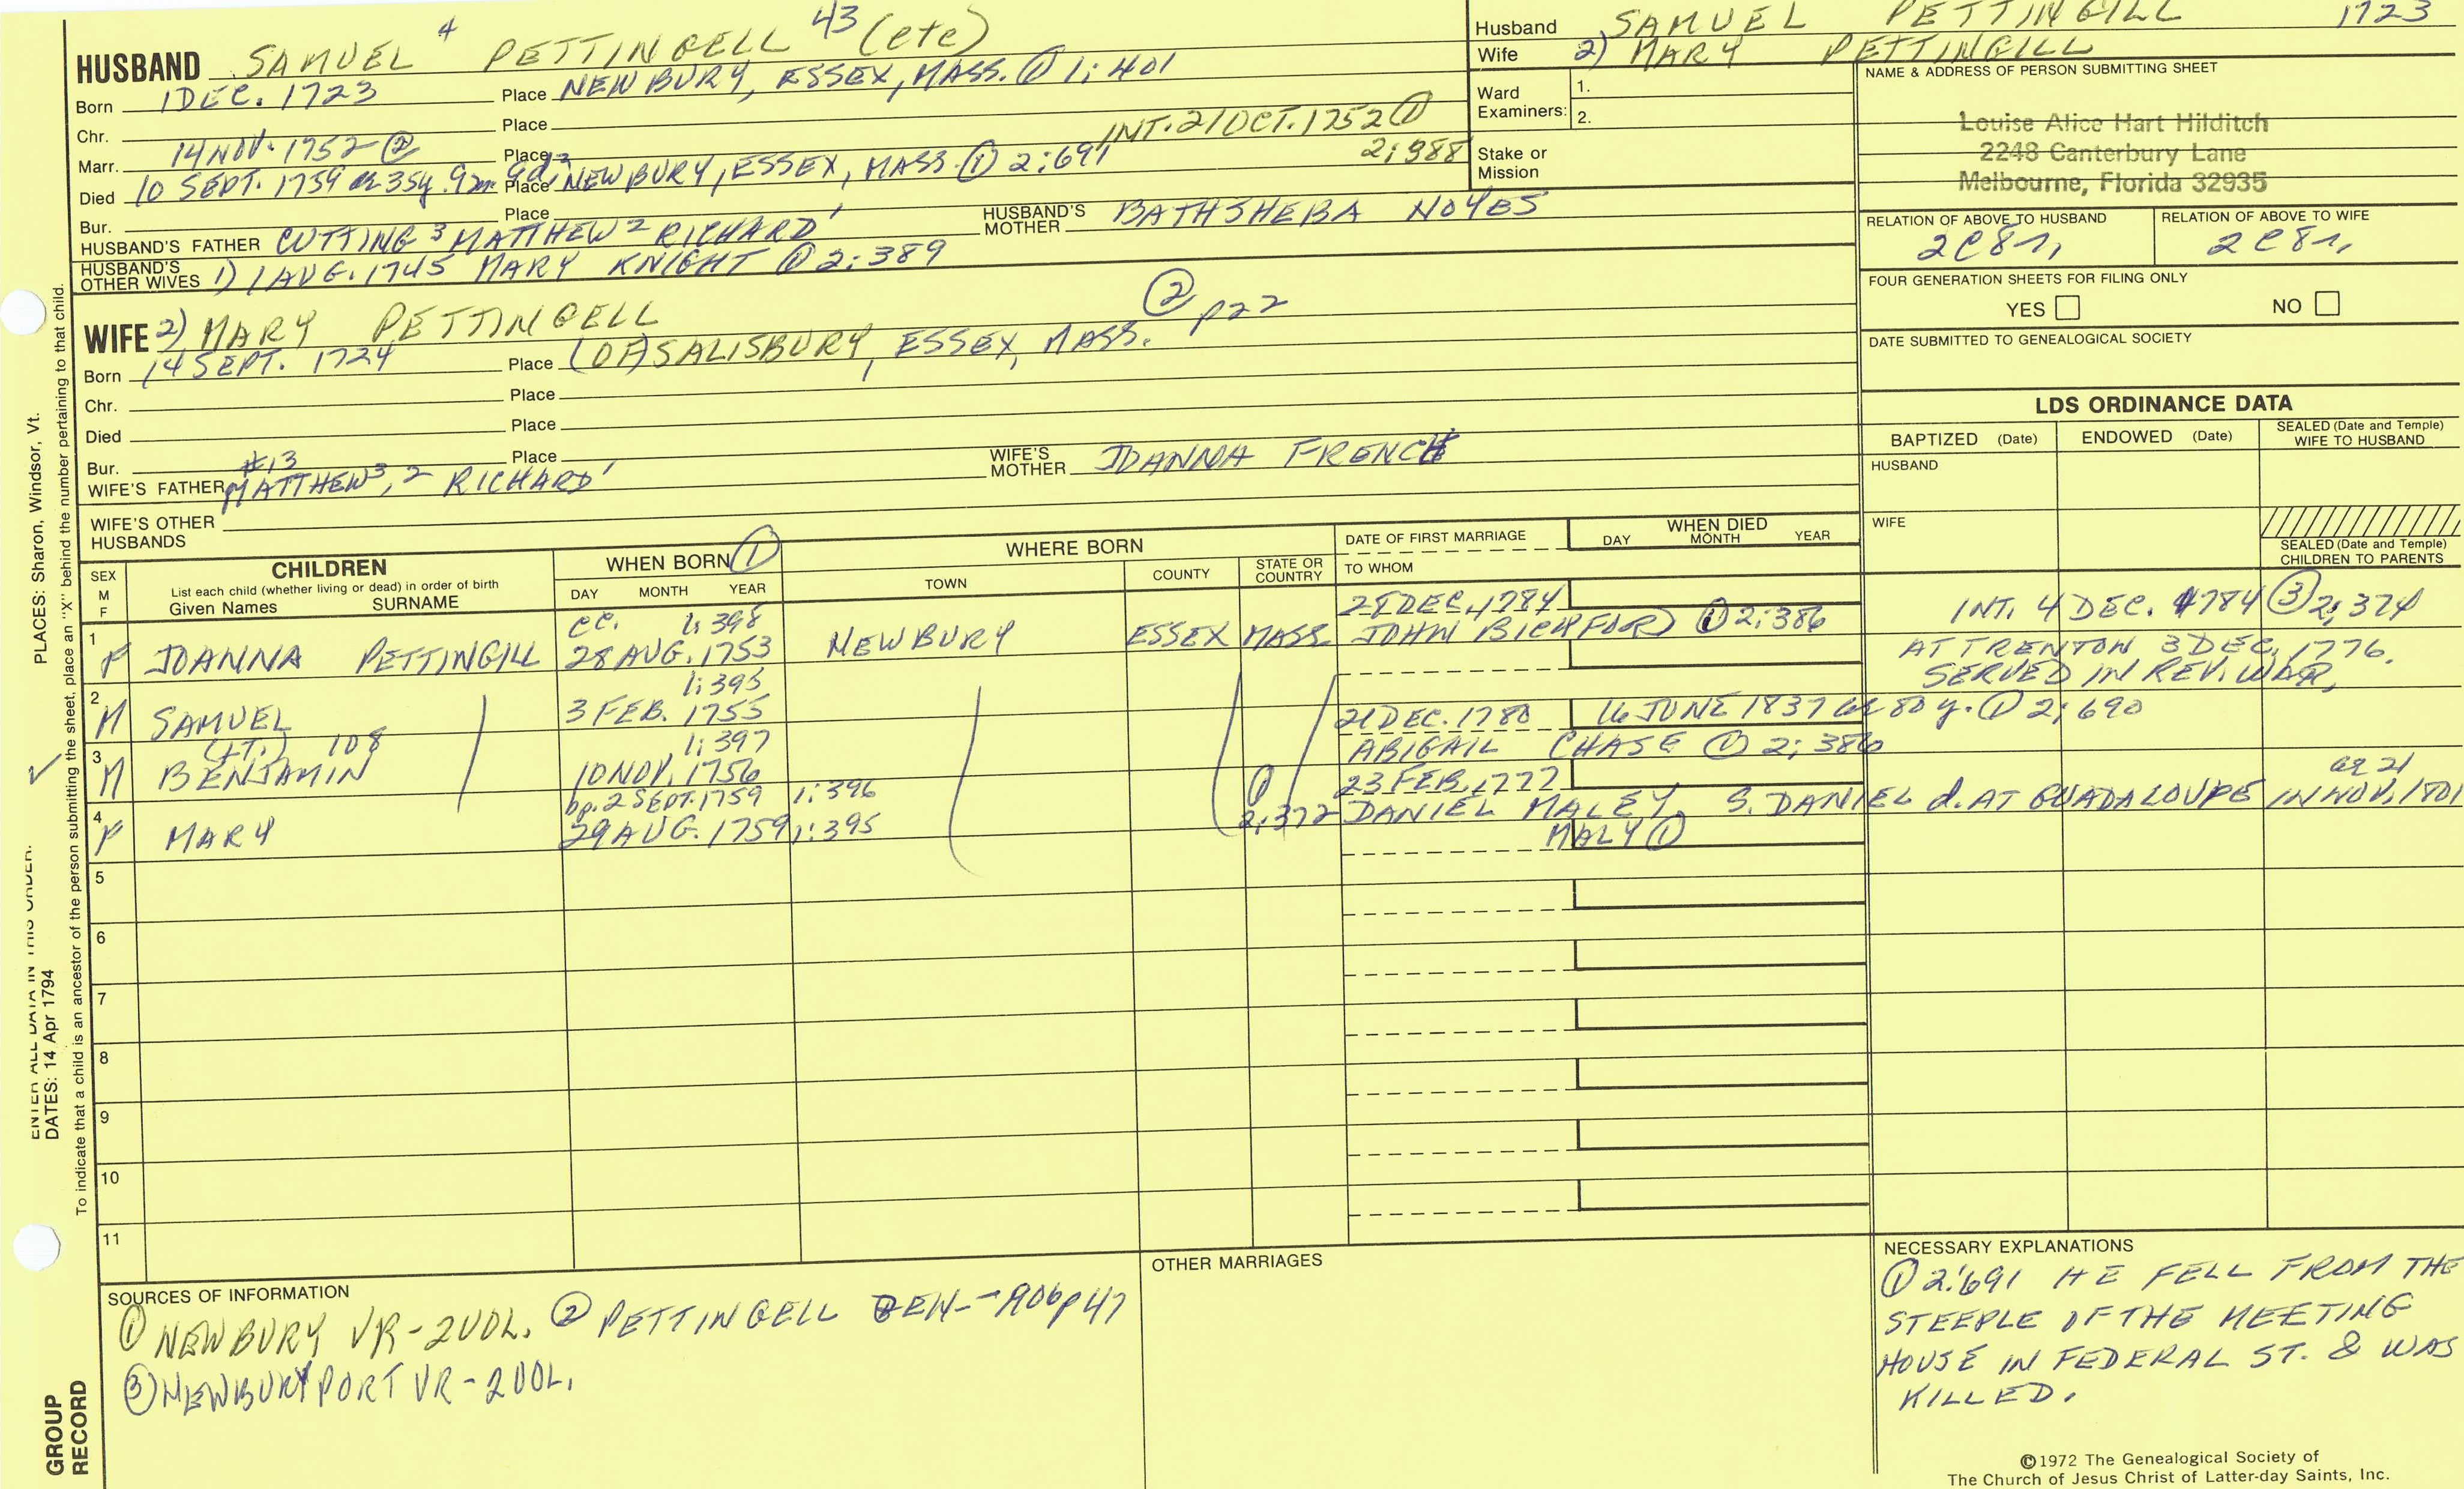 HUSBAND SAMUEL 4 PETTINGELL 43 (etc)
Born 1 DEC. 1723 Place NEWBURY, ESSEX, MASS. ① 1:401
Chr. Place INT. 21 OCT. 1752 ①
Marr. 14 NOV. 1752 ② Place 2:388
Died 10 SEPT. 1759 ae 35y. 9m. 9d. Place NEWBURY, ESSEX, MASS. ① 2:691
Bur. Place
HUSBAND'S FATHER CUTTING 3 MATTHEW 2 RICHARD 1 HUSBAND'S MOTHER BATHSHEBA NOYES
HUSBAND'S OTHER WIVES 1) 1 AUG. 1745 MARY KNIGHT ① 2:389
WIFE 2) MARY PETTINGELL ② p22
Born 14 SEPT. 1724 Place (OF) SALISBURY, ESSEX, MASS.
Chr. Place
Died Place
Bur. Place
WIFE'S FATHER #13 MATTHEW 3, 2 RICHARD 1 WIFE'S MOTHER JOANNA FRENCH
WIFE'S OTHER HUSBANDS
Husband SAMUEL PETTINGILL 1723
Wife 2) MARY PETTINGILL
Ward Examiners: 1.
2.
Stake or Mission
NAME & ADDRESS OF PERSON SUBMITTING SHEET
Louise Alice Hart Hilditch
2248 Canterbury Lane
Melbourne, Florida 32935
RELATION OF ABOVE TO HUSBAND RELATION OF ABOVE TO WIFE
2C8r, 2C8r,
FOUR GENERATION SHEETS FOR FILING ONLY
YES NO
DATE SUBMITTED TO GENEALOGICAL SOCIETY
LDS ORDINANCE DATA
BAPTIZED (Date) ENDOWED (Date) SEALED (Date and Temple) WIFE TO HUSBAND
HUSBAND
WIFE
SEALED (Date and Temple) CHILDREN TO PARENTS
SEX M F CHILDREN
List each child (whether living or dead) in order of birth
Given Names SURNAME
WHEN BORN ①
DAY MONTH YEAR
WHERE BORN
TOWN COUNTY STATE OR COUNTRY
DATE OF FIRST MARRIAGE
TO WHOM
WHEN DIED
DAY MONTH YEAR
1 F JOANNA PETTINGILL 1:398 28 AUG. 1753 NEWBURY ESSEX MASS. DEC. 1784 JOHN BICKFORD ① 2:386 INT. 4 DEC. 1784 ③ 2:374
AT TRENTON 3 DEC. 1776.
SERVED IN REV. WAR,
2 M SAMUEL 1:395 3 FEB. 1755
3 M (LT.) 108 BENJAMIN 1:397 10 NOV. 1756 21 DEC. 1780 16 JUNE 1837 ae 80 y. ① 2:690
ABIGAIL CHASE ① 2:386
4 F MARY bp. 2 SEPT. 1759 1:396 29 AUG. 1759 1:395 ① 2:372 23 FEB. 1777 DANIEL MALEY, S. DANIEL d. AT GUADALOUPE IN NOV. 1801 ae 21
MALY ①
5
6
7
8
9
10
11
SOURCES OF INFORMATION
① NEWBURY VR-2VOL. ② PETTINGELL GEN--1906 p47
③ NEWBURYPORT VR-2VOL.
OTHER MARRIAGES
NECESSARY EXPLANATIONS
① 2:691 HE FELL FROM THE
STEEPLE OF THE MEETING
HOUSE IN FEDERAL ST. & WAS
KILLED.
©1972 The Genealogical Society of
The Church of Jesus Christ of Latter-day Saints, Inc.
ENTER ALL DATA IN THIS ORDER:
DATES: 14 Apr 1794 PLACES: Sharon, Windsor, Vt.
To indicate that a child is an ancestor of the person submitting the sheet, place an "X" behind the number pertaining to that child.
GROUP RECORD